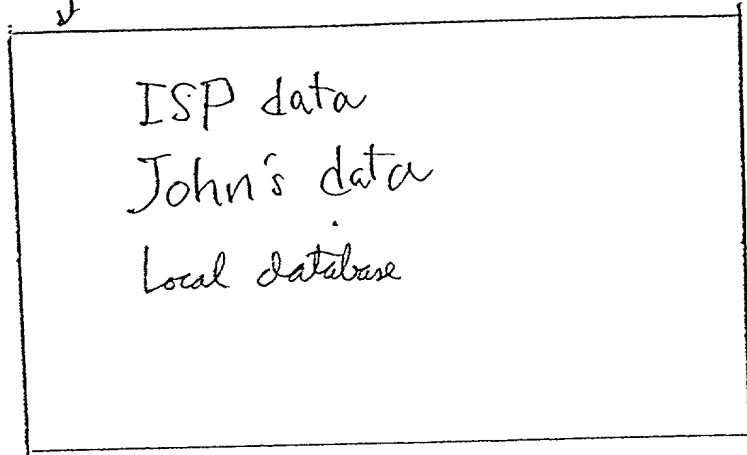 ISP data
John's data
Local database